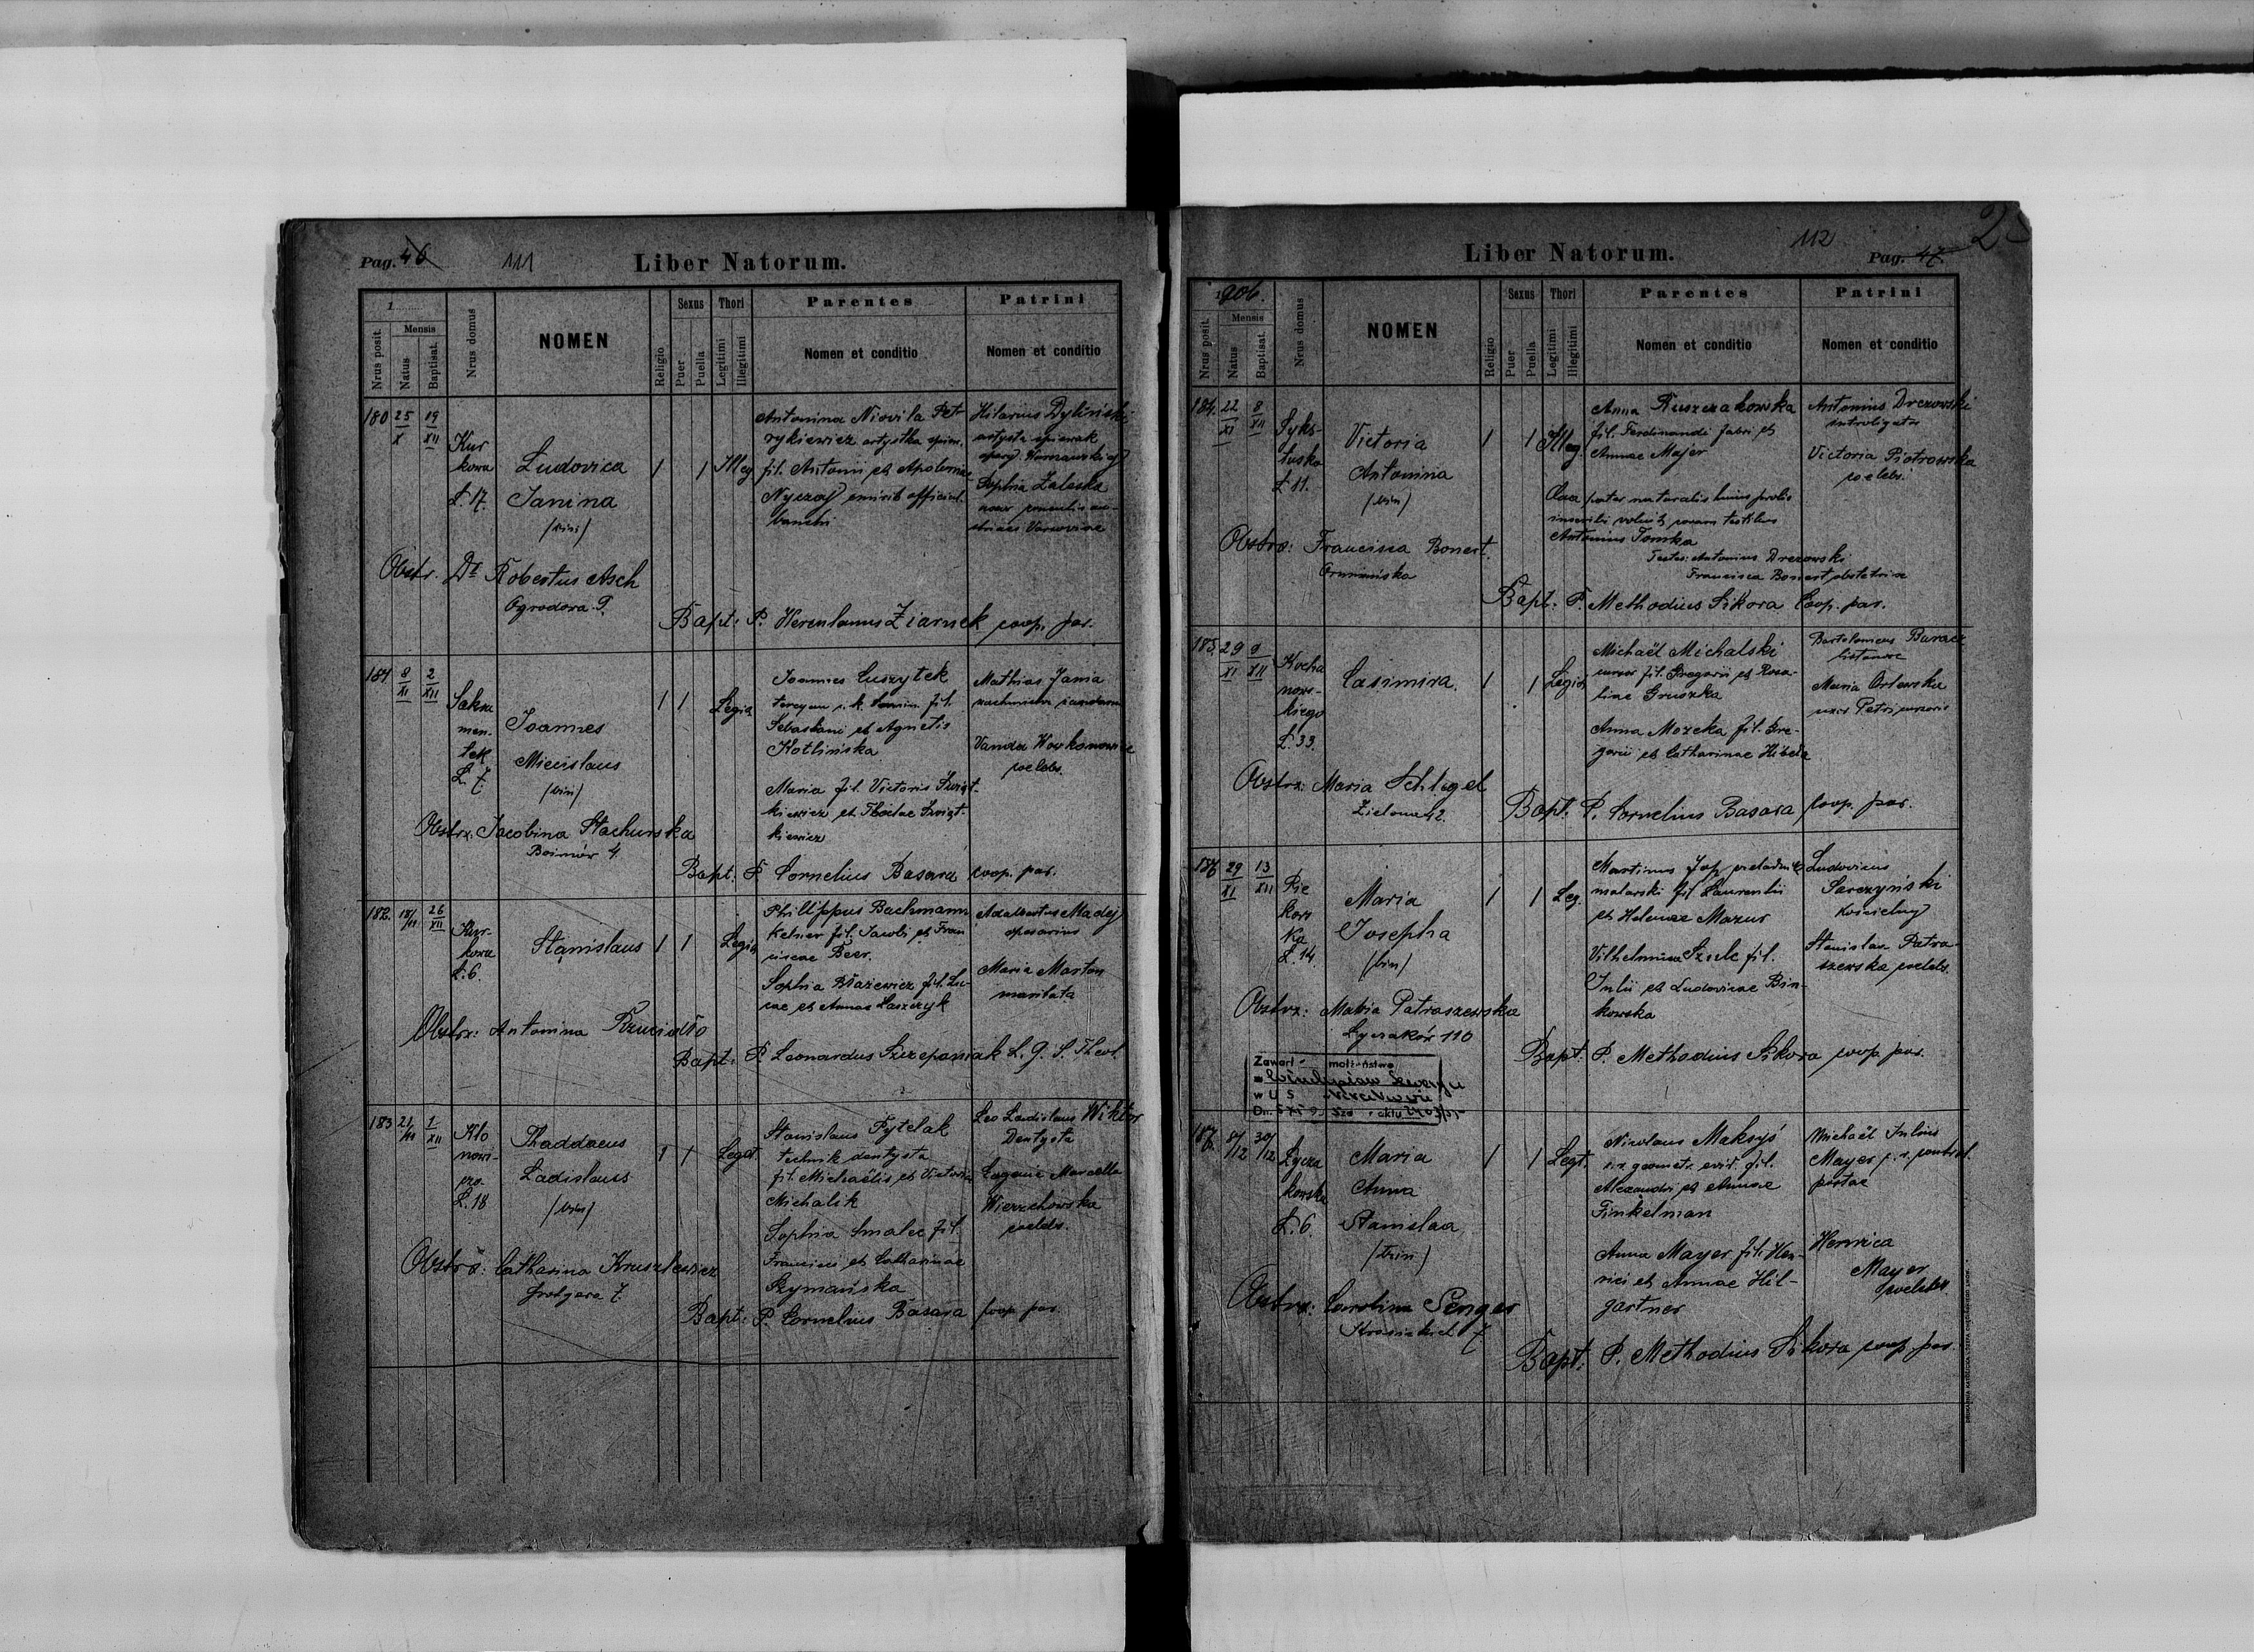 Pag. 46
111
Liber Natorum.
1
Nrus posit.
Mensis
Natus
Baptisat.
Nrus domus
NOMEN
Religio
Sexus
Puer
Puella
Thori
Legitimi
Illegitimi
Parentes
Nomen et conditio
Patrini
Nomen et conditio
180 25/X 19/XII
Kur
kowa
L. 17.
Ludovica
Janina
/bini/
1 1 Illeg
Antonina Niovila Pet-
rykiewicz artystka
fil. Antonii et Apoloniae
Nyczaj
Hilarius Dyliński
artysta śpiewak
Sophia Zaleska
Obstr. Dr Robertus Asch
Bapt: P. Herculanus Ziarnek coop. par.
181 8/XI 2/XII
Sakra
men-
tek
L. 7.
Joannes
Miecislaus
/bini/
1 1 Legit
Joannes Cuszytek
fil.
Sebastiani et Agnetis
Kotlińska
Maria fil. Victoris Świąt-
kiewicz et Theclae Świąt-
kiewicz
Mathias Jania
Vanda
caelebs.
Obstrx. Jacobina Stachurska
Boimów 4.
Bapt: P. Cornelius Basara coop. par.
182. 18/XI 26/XII
Kur-
kowa
L. 6.
Stanislaus
1 1 Legit
Philippus Bachmann
Kelner fil. Jacobi et Fran
ciscae Beer.
Sophia Błażewicz fil. Lu-
cae et Annae Łaszczyk
Adalbertus Madej
Maria Marton
maritata
Obstrx: Antonina
Bapt: P. Leonardus Szczepaniak L. G. S. Theol.
183 21/XI 1/XII
Klo
nowi-
cza
L. 18
Thaddaeus
Ladislaus
/bini/
1 1 Legit
Stanislaus Pytelak
technik dentysta
fil. Michaëlis et Victoria
Michalik
Sophia Smalec fil.
Francisci et Catharinae
Szymańska
Leo Ladislaus Wiktor
Dentysta
Eugenia Marcella
Wierzchowska
caelebs.
Obstrx: Catharina Kruszlewicz
Grotgera 7.
Bapt: P. Cornelius Basara coop. par
Liber Natorum.
112
Pag. 47.
2
1906.
Nrus posit.
Mensis
Natus
Baptisat.
Nrus domus
NOMEN
Religio
Sexus
Puer
Puella
Thori
Legitimi
Illegitimi
Parentes
Nomen et conditio
Patrini
Nomen et conditio
184. 22/XI 8/XII
Syks-
tuska
L. 11.
Victoria
Antonina
/bin/
1 1 Illeg
Anna Ruszczakowska
fil. Ferdinandi fabri et
Annae Majer
Qua pater naturalis huius prolis
inscribi voluit coram testibus
Antonius Tomka
Testes: Antonius Drezowski
Francisca Bonert obstetrix
Antonius Drezowski
introligator
Victoria Piotrowska
caelebs.
Obstrx: Francisca Bonert.
Ormiańska
Bapt: P. Methodius Sikora Coop. par.
185. 29/XI 9/XII
Kocha
now-
kiego
L. 33.
Casimira.
1 1 Legit
Michaël Michalski
fil. Gregorii et Rosa-
liae Gruszka
Anna Mozeka fil. Gre-
gorii et Catharinae
Bartolomeus
listonosz
Maria Orlewska
uxor Petri
Obstrx: Maria Schlegel
Zielona 42.
Bapt: P. Cornelius Basara coop. par.
186 29/XI 13/XII
Pie
kars
ka
L. 14.
Maria
Josepha
/bin/
1 1 Leg.
Martinus Jop
malarski fil Laurentii
et Helenae Mazur
Vilhelmina fil.
Julii et Ludovicae Bin-
kowska
Ludovicus
Sarczyński
kościelny
Stanislaa Patra-
szewska caelebs.
Obstrx: Maria Patraszewska
Łyczaków 110
Bapt: P. Methodius Sikora coop. par.
Zawarł małżeństwo
w U S
187. 8/12 30/12
Łycza
kowska
L. 6.
Maria
Anna
Stanislaa
/trin/
1 1 Legt.
Nicolaus Maksyś
fil.
Alexandri et Annae
Finkelman
Anna Mayer fil. Hen-
rici et Annae Hil-
gartner
Michaël Julius
Mayer
Henrica
Mayer
caelebs.
Obstrx: Carolina Senger
Bapt: P. Methodius Sikora coop. par.